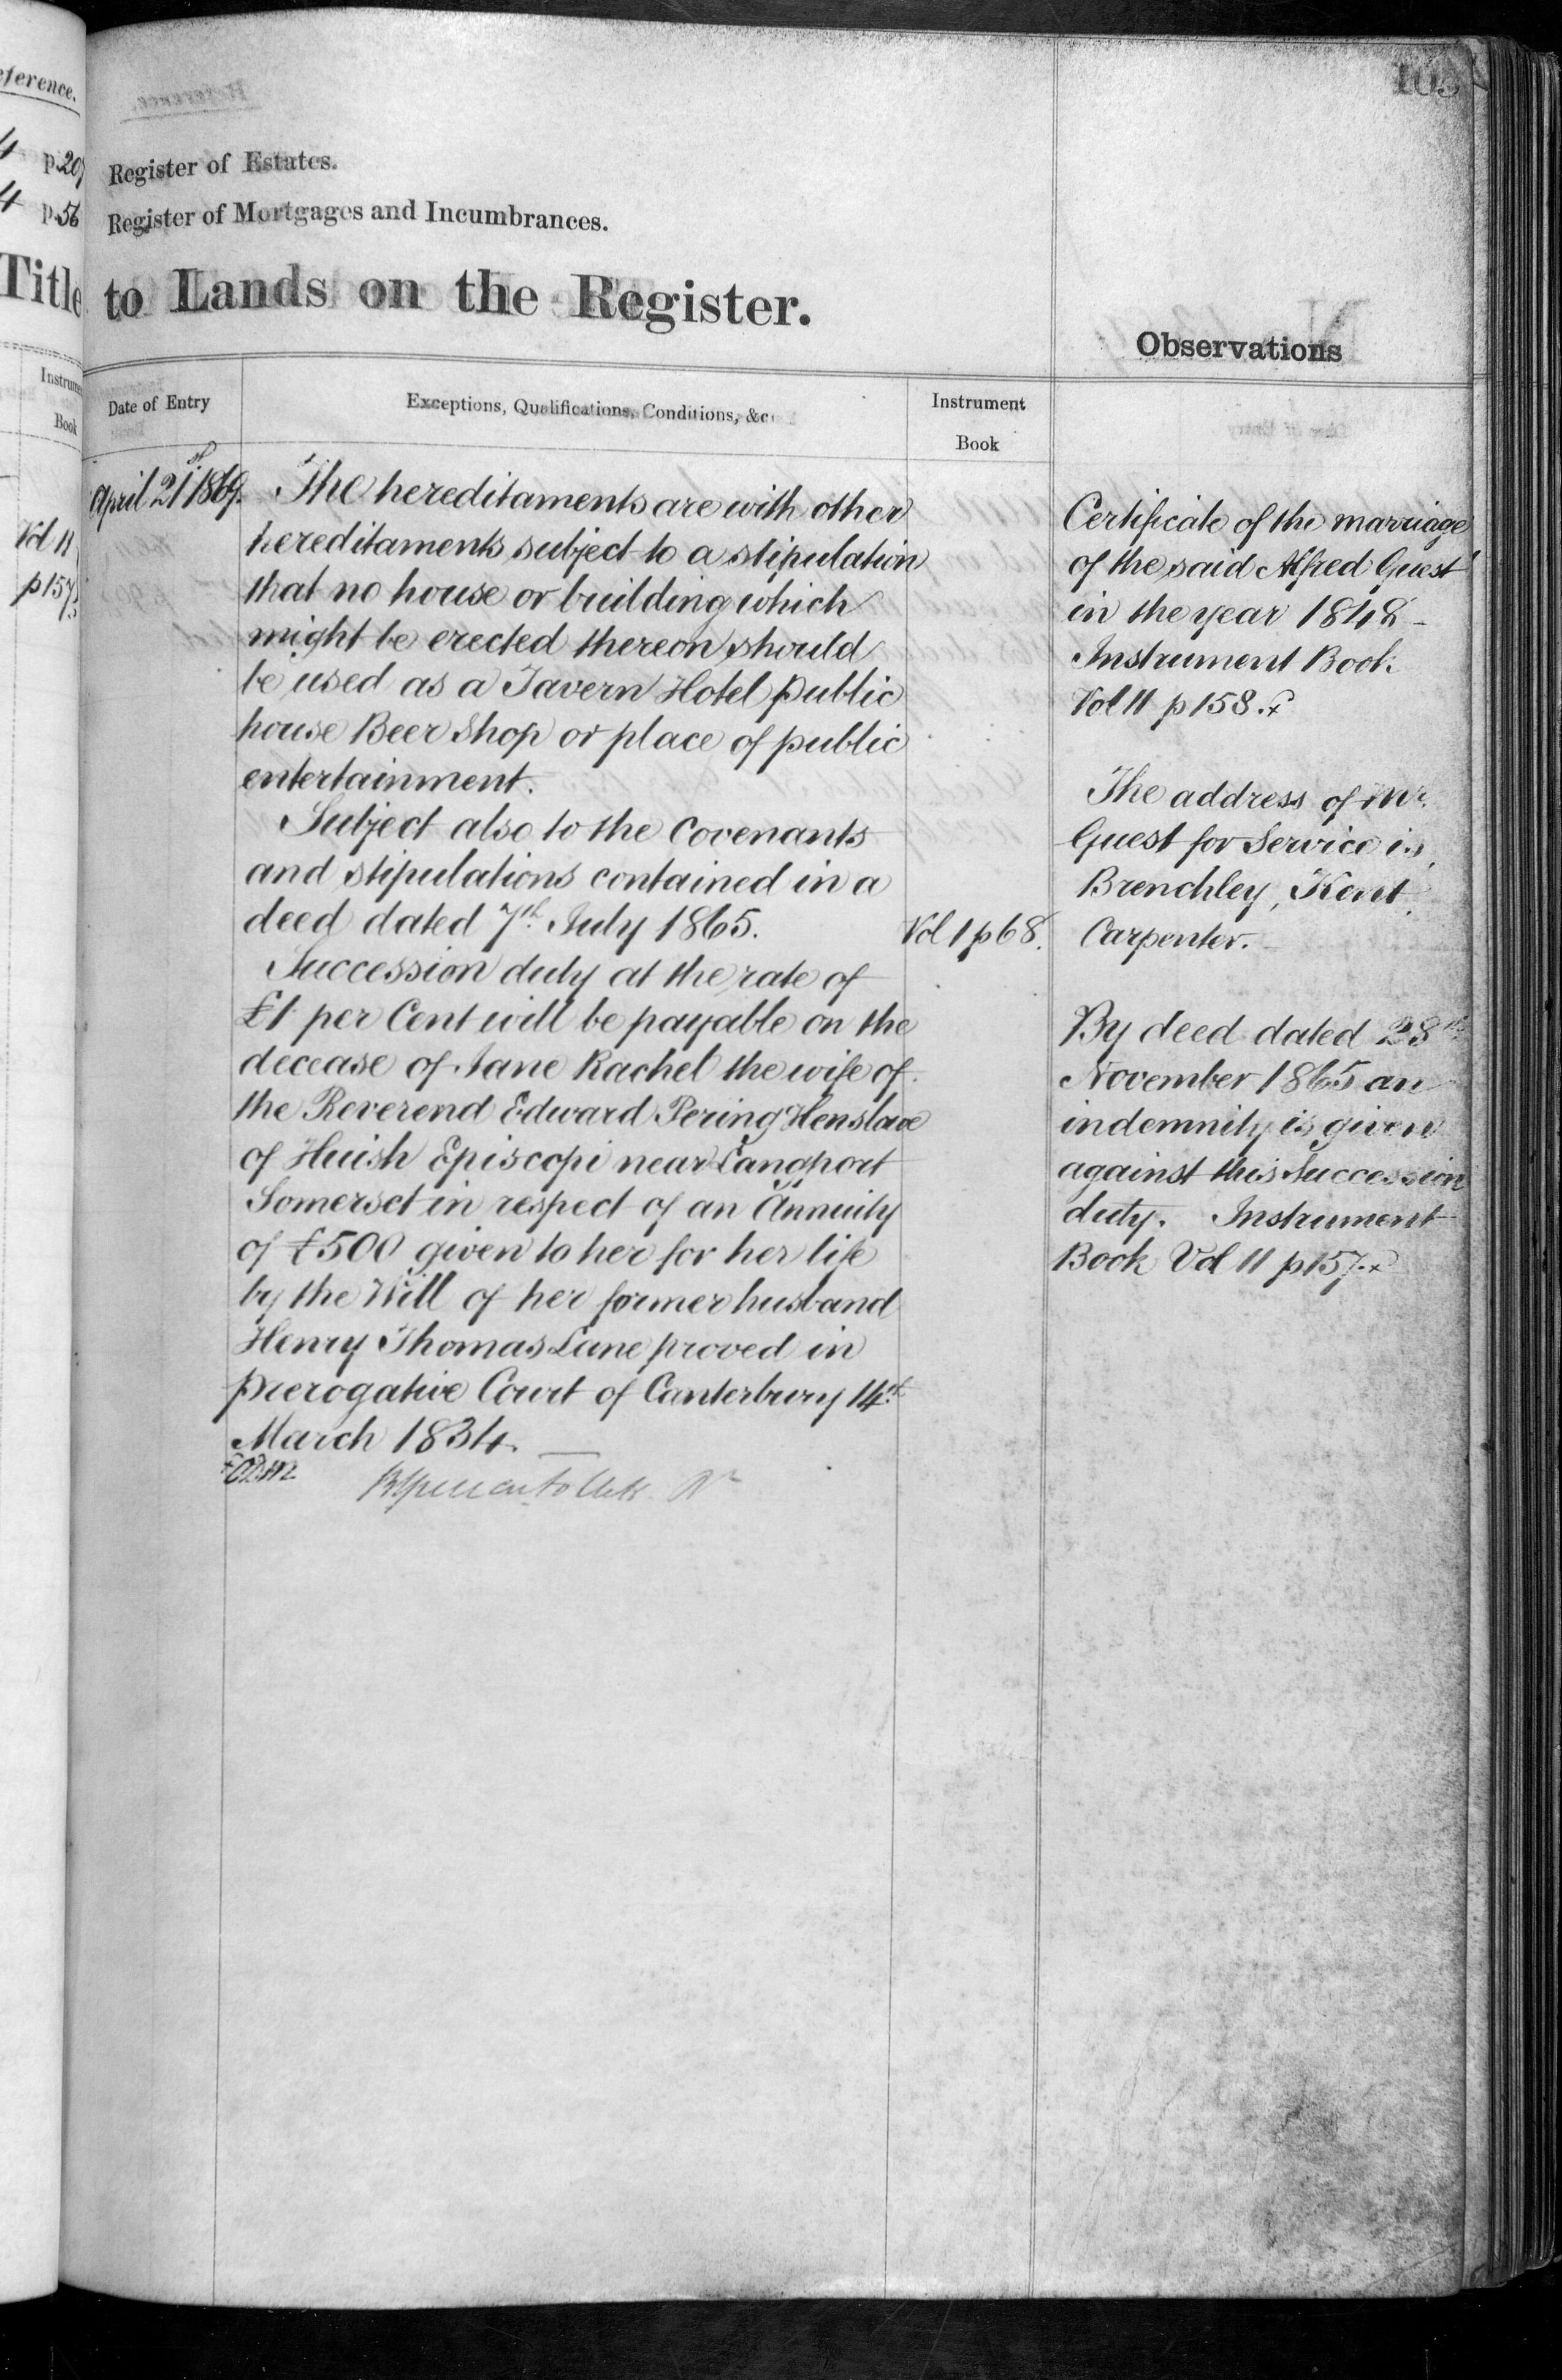 eference.
4 p.207
4 p.56
Title
Instrume
Book
Vol 11
p157
103
Register of Estates.
Register of Mortgages and Incumbrances.
to Lands on the Register.
Observations
Date of Entry
Exceptions, Qualifications, Conditions, &c
Instrument
Book
April 21st 1869.
The hereditaments are with other
hereditaments subject to a stipulation
that no house or building which
might be erected thereon should
be used as a Tavern Hotel public
house Beer Shop or place of public
entertainment.
Subject also to the Covenants
and stipulations contained in a
deed dated 7th July 1865.
Vol 1 p68.
Succession duty at the rate of
£1 per Cent will be payable on the
decease of Jane Rachel the wife of
the Reverend Edward Pering Henslowe
of Huish Episcopi near Langport
Somerset in respect of an Annuity
of £500 given to her for her life
by the Will of her former husband
Henry Thomas Lane proved in
Prerogative Court of Canterbury 14th
March 1834.
Certificate of the marriage
of the said Alfred Guest
in the year 1848
Instrument Book
Vol 11 p158.x
The address of Mr.
Guest for Service is
Brenchley, Kent,
Carpenter.
By deed dated 28th
November 1865 an
indemnity is given
against this Succession
duty. Instrument
Book Vol 11 p157.x